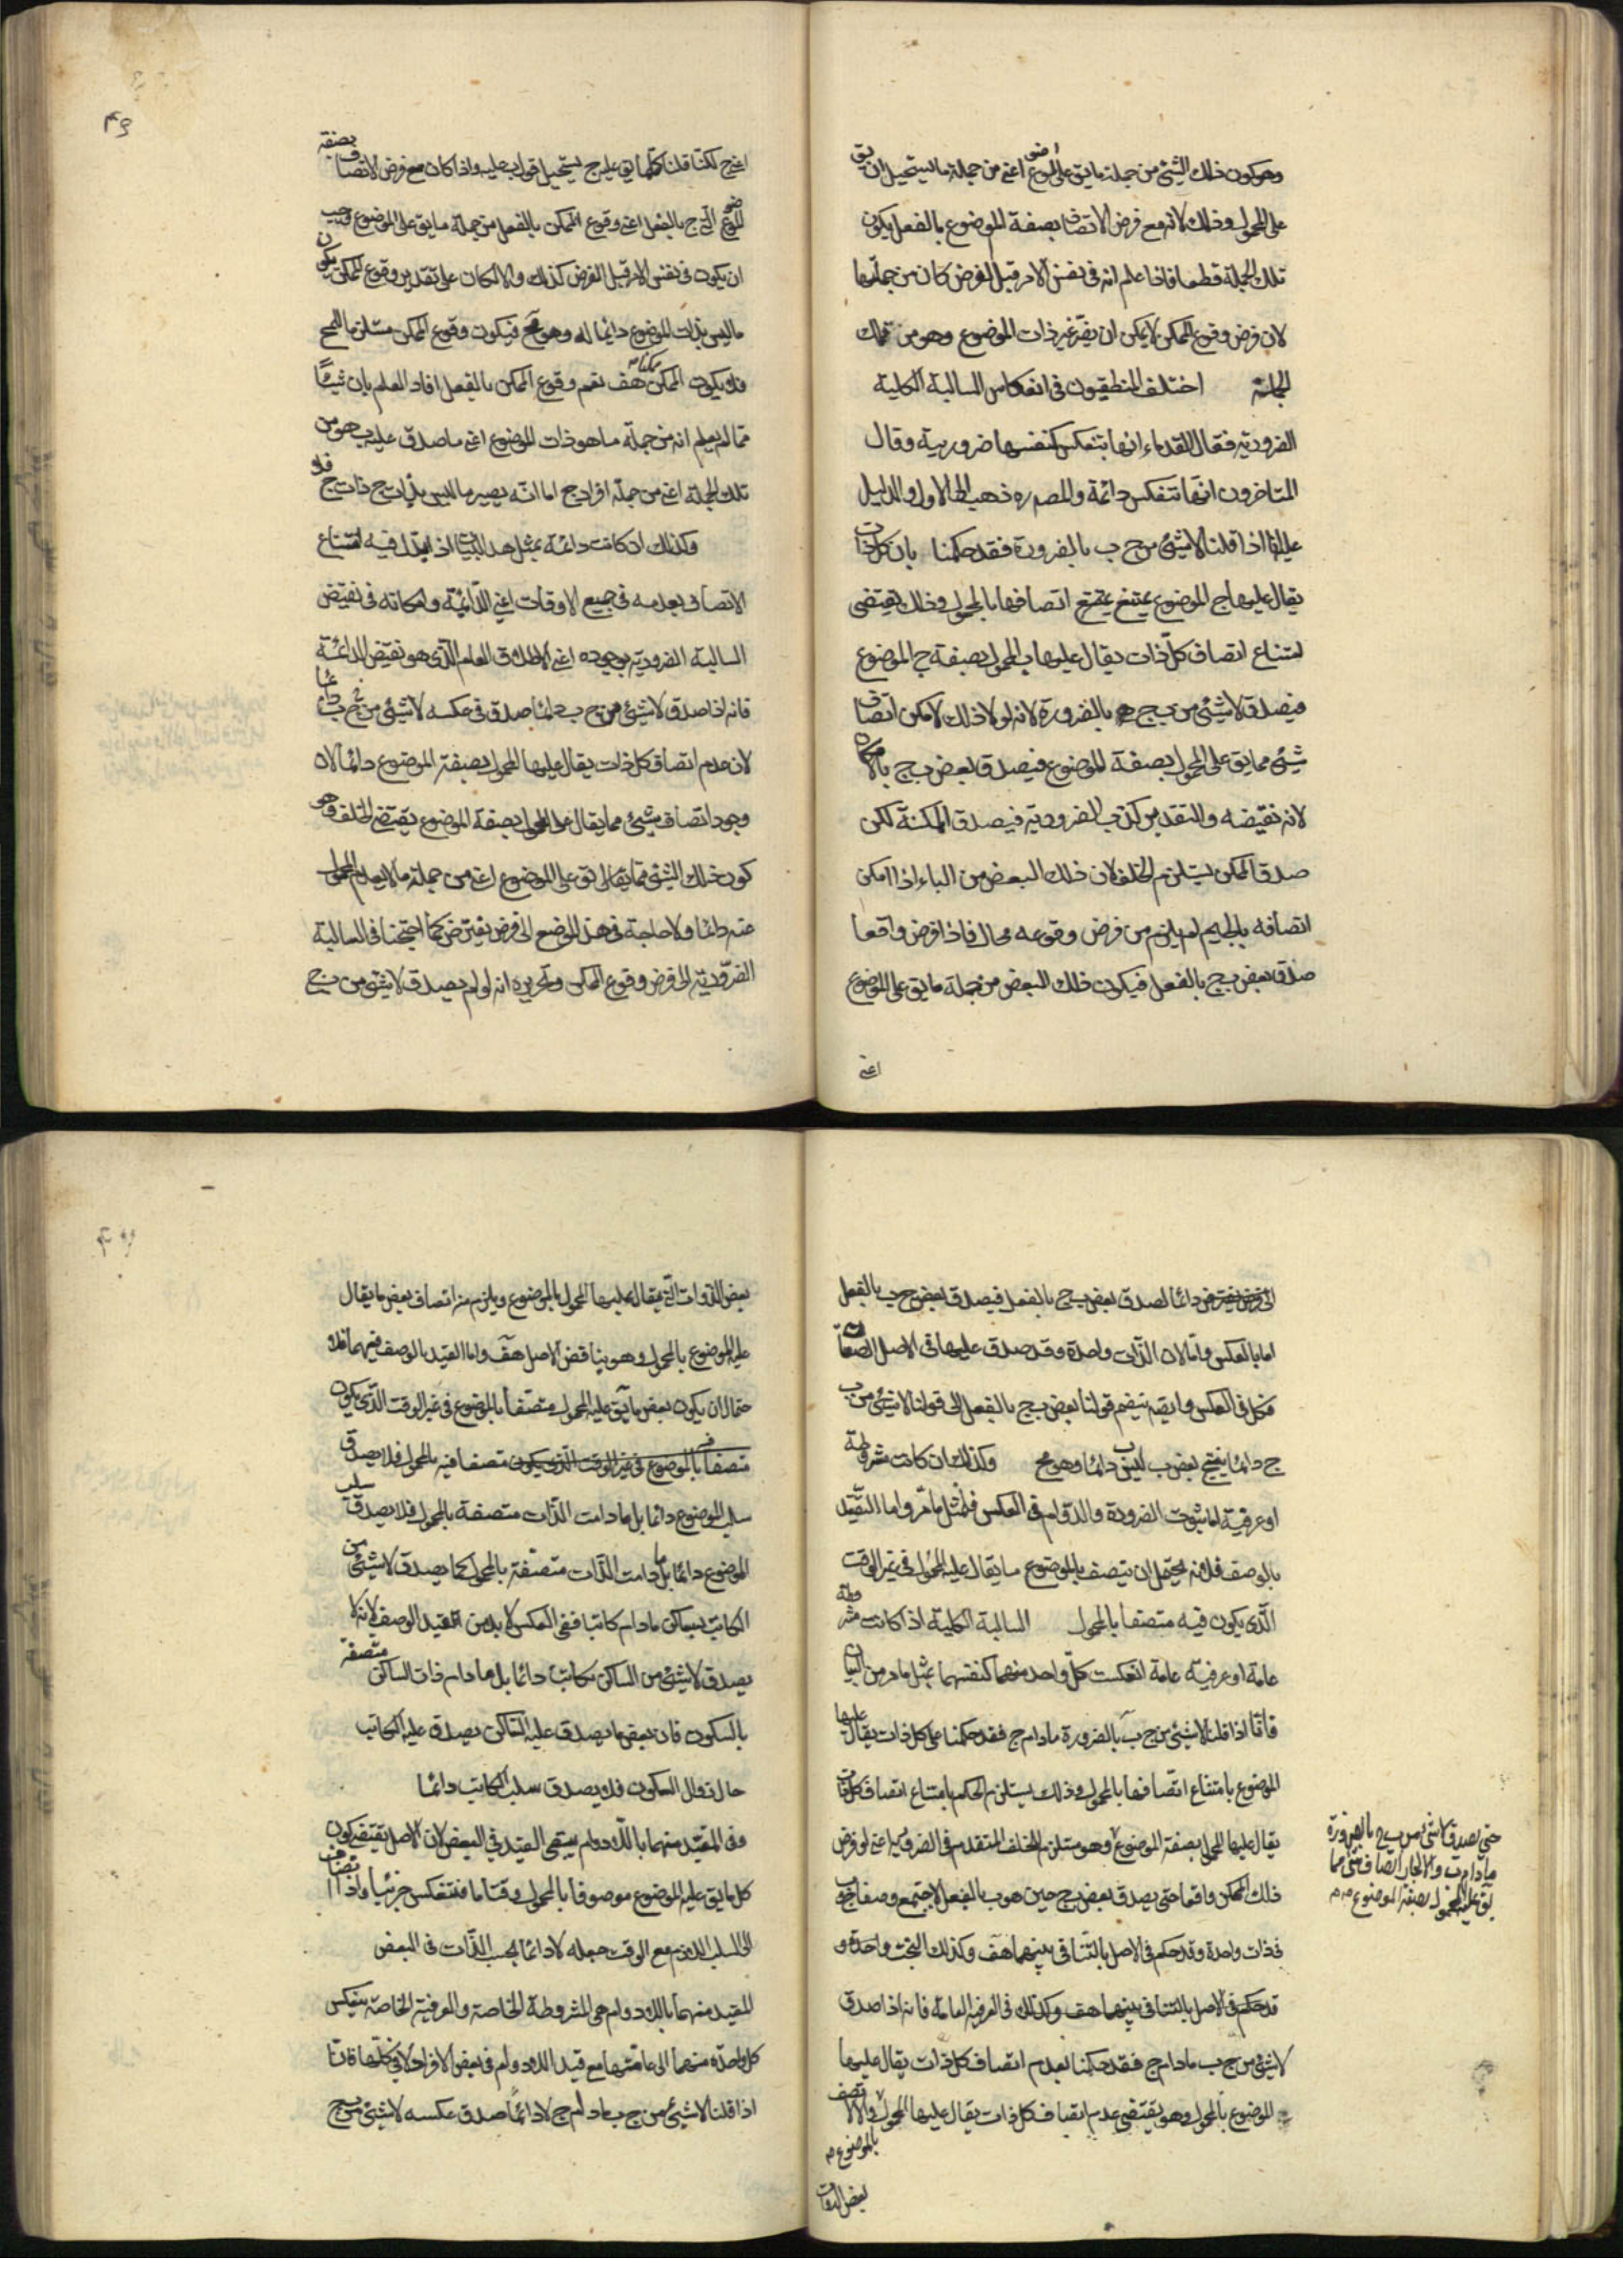 وهو كون ذلك الشئ من جملة ما يق على الموضوع اعنى من جملة ما يستحيل ان يق
على المحمول وذلك لانه مع فرض الاتصاف بصفة الموضوع بالفعل يكون
تلك الجملة قطعا فاذا علم انه فى نفس الامر قبل الفرض كان من جملتها
لان فرض وقوع الممكن لا يمكن ان يغير غير ذات الموضوع وهو من تلك
الجملة اختلف المنطقيون فى انعكاس السالبة الكلية
الضرورية فقال القدماء انها تنعكس كنفسها ضرورية وقال
المتاخرون انها تنعكس دائمة والمص ره ذهب الى الاول والدليل
عليه انا اذا قلنا لا شئ من ج ب بالضرورة فقد حكمنا بان كل ذات
يقال عليها ج الموضوع يمتنع اتصافها بالمحمول وذلك يقتضى
امتناع اتصاف كل ذات يقال عليها ب المحمول بصفة ج الموضوع
فيصدق لا شئ من ب ج بالضرورة لانه لولا ذلك لامكن اتصاف
شئ مما يق على المحمول بصفة الموضوع فيصدق بعض ب ج بالامكان
لانه نقيضه والتقدير كذب الضرورية فيصدق الممكنة لكن
صدق الممكن يستلزم الخلف لان ذلك البعض من الباء اذا امكن
اتصافه بالجيم لم يلزم من فرض وقوعه محال فاذا فرض واقعا
صدق بعض ب ج بالفعل فيكون ذلك البعض من جملة ما يق على الموضوع
اعنى
اعنى ج لكنا قلنا كلما يق عليه ج يستحيل قول ب عليه واذا كان مع فرض الاتصاف بصفة
الموضوع اى ج بالفعل اعنى وقوع الممكن بالفعل من جملة ما يق على الموضوع وجب
ان يكون فى نفس الامر قبل الفرض كذلك والا لكان على تقدير وقوع الممكن يكون
ما ليس بذات الموضوع دائما له وهو مح فيكون وقوع الممكن مستلزما للمح
فلا يكون الممكن ممكنا هف نعم وقوع الممكن بالفعل افاد العلم بان شيئا
مما لم يعلم انه من جملة ما هو ذات الموضوع اعنى ما صدق عليه ب هو من
تلك الجملة اعنى من جملة افراد ج اما انه يصير ما ليس بذات ج ذات ج فلا
وكذلك ان كانت دائمة بمثل هذا البيان اذا بدل فيه امتناع
الاتصاف بعدمه فى جميع الاوقات اعنى الدائمة وامكانه فى نقيض
السالبة الضرورية بوجوده اعنى الاطلاق العام الذى هو نقيض الدائمة
فانه اذا صدق لا شئ من ج ب دائما صدق فى عكسه لا شئ من ب ج دائما
لان عدم اتصاف كل ذات يقال عليها المحمول بصفة الموضوع دائما لان
وجود اتصاف شئ مما يقال على المحمول بصفة الموضوع يقتضى الخلف وهو
كون ذلك الشئ مما يق على الموضوع اعنى من جملة ما لا يعدم المحمول
عنه دائما ولا حاجة فى هذا الموضع الى فرض يفترض كما احتجنا فى السالبة
الضرورية الى فرض وقوع الممكن وتحريره انه لو لم يصدق لا شئ من ب ج
الى فرض يفترض دائما لصدق بعض ب ج بالفعل فيصدق بعض ج ب بالفعل
اما بالعكس واما لان الذات واحدة وقد صدق عليها فى الاصل الصفتان
فكل فى العكس وايضه ينضم قولنا بعض ب ج بالفعل الى قولنا لا شئ من
ج ب دائما ينتج بعض ب ليس ب دائما وهو مح وكذلك ان كانت مشروطة
او عرفية اما ثبوت الضرورة والدوام فى العكس فلمثل ما مر واما التقييد
بالوصف فلانه يحتمل ان يتصف بالموضوع ما يقال عليه المحمول فى غير الوقت
الذى يكون فيه متصفا بالمحمول السالبة الكلية اذا كانت مشروطة
عامة او عرفية عامة انعكست كل واحد منهما كنفسها بمثل ما مر من البيان
فانا اذا قلنا لا شئ من ج ب بالضرورة ما دام ج فقد حكمنا على كل ذات يقال عليها
الموضوع بامتناع اتصافها بالمحمول وذلك يستلزم الحكم بامتناع اتصاف كل ذات
يقال عليها المحمول بصفة الموضوع وهو مستلزم للخلف المتقدم فى الضرورية اعنى لو فرض
ذلك الممكن واقعا حتى يصدق بعض ب ج حين هو ب بالفعل لاجتمع وصفا ج و ب
فى ذات واحدة وقد حكم فى الاصل بالتنافى بينهما هف وكذلك البحث واحدة و
قد حكم فى الاصل بالتنافى بينهما هف وكذلك فى العرفية العامة فانه اذا صدق
لا شئ من ج ب ما دام ج فقد حكمنا بعدم اتصاف كل ذات يقال عليها
الموضوع بالمحمول وهو يقتضى عدم اتصاف كل ذات يقال عليها المحمول والا لاتصف
بالموضوع
بعض الذوات
حتى يصدق لا شئ من ب ج بالضرورة
ما دام ب والا لجاز اتصاف شئ مما
يق عليه المحمول بصفة الموضوع
بعض الذوات التى يقال عليها المحمول بالموضوع ويلزم منه اتصاف بعض ما يقال
عليه الموضوع بالمحمول وهو يناقض الاصل هف واما القيد بالوصف فيهما فلا
حتمال ان يكون بعض ما يق عليه المحمول متصفا بالموضوع فى غير الوقت الذى يكون
متصفا بالموضوع فى غير الوقت الذى يكون متصفا فيه بالمحمول فلا يصدق
سلب الموضوع دائما بل ما دامت الذات متصفة بالمحمول فلا يصدق سلب
الموضوع دائما بل ما دامت الذات متصفة بالمحمول كما يصدق لا شئ من
الكاتب بساكن ما دام كاتبا ففى العكس لا بد من القيد الوصف لانه لا
يصدق لا شئ من الساكن بكاتب دائما بل ما دام ذات الساكن متصفة
بالسكون فان بعض ما يصدق عليه الساكن يصدق عليه الكاتب
حال زوال السكون فلا يصدق سلب الكاتب دائما
وفى المقيد منهما باللادوام يبقى القيد فى البعض لان الاصل يقتضى كون
كل ما يق عليه الموضوع موصوفا بالمحمول وقتا ما فتنعكس جزئيا واذا
الى السلب اللازم مع الوقت جعله لا دائما بحسب الذات فى البعض
المقيد منهما باللادوام هى المشروطة الخاصة والعرفية الخاصة ينعكس
كل واحدة منهما الى عامتها مع قيد اللادوام فى بعض الافراد لا فى كلها فانا
اذا قلنا لا شئ من ج ب ما دام ج لا دائما صدق عكسه لا شئ من ب ج